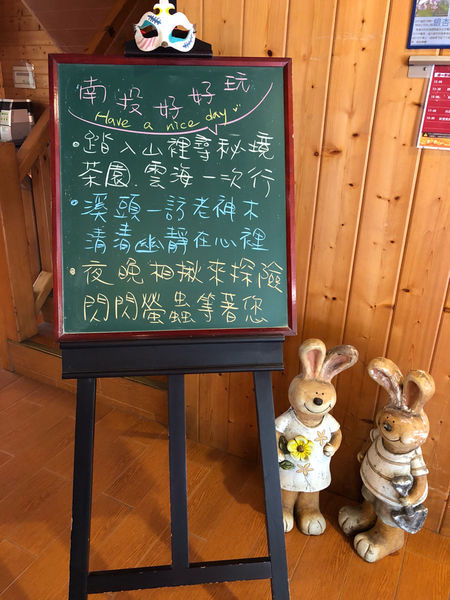 南投好好玩
Have a nice day
•踏入山裡尋秘境
茶園.雲海一次行
•溪頭一訪老神木
清清幽靜在心裡
•夜晚相揪來探險
閃閃螢蟲等著您